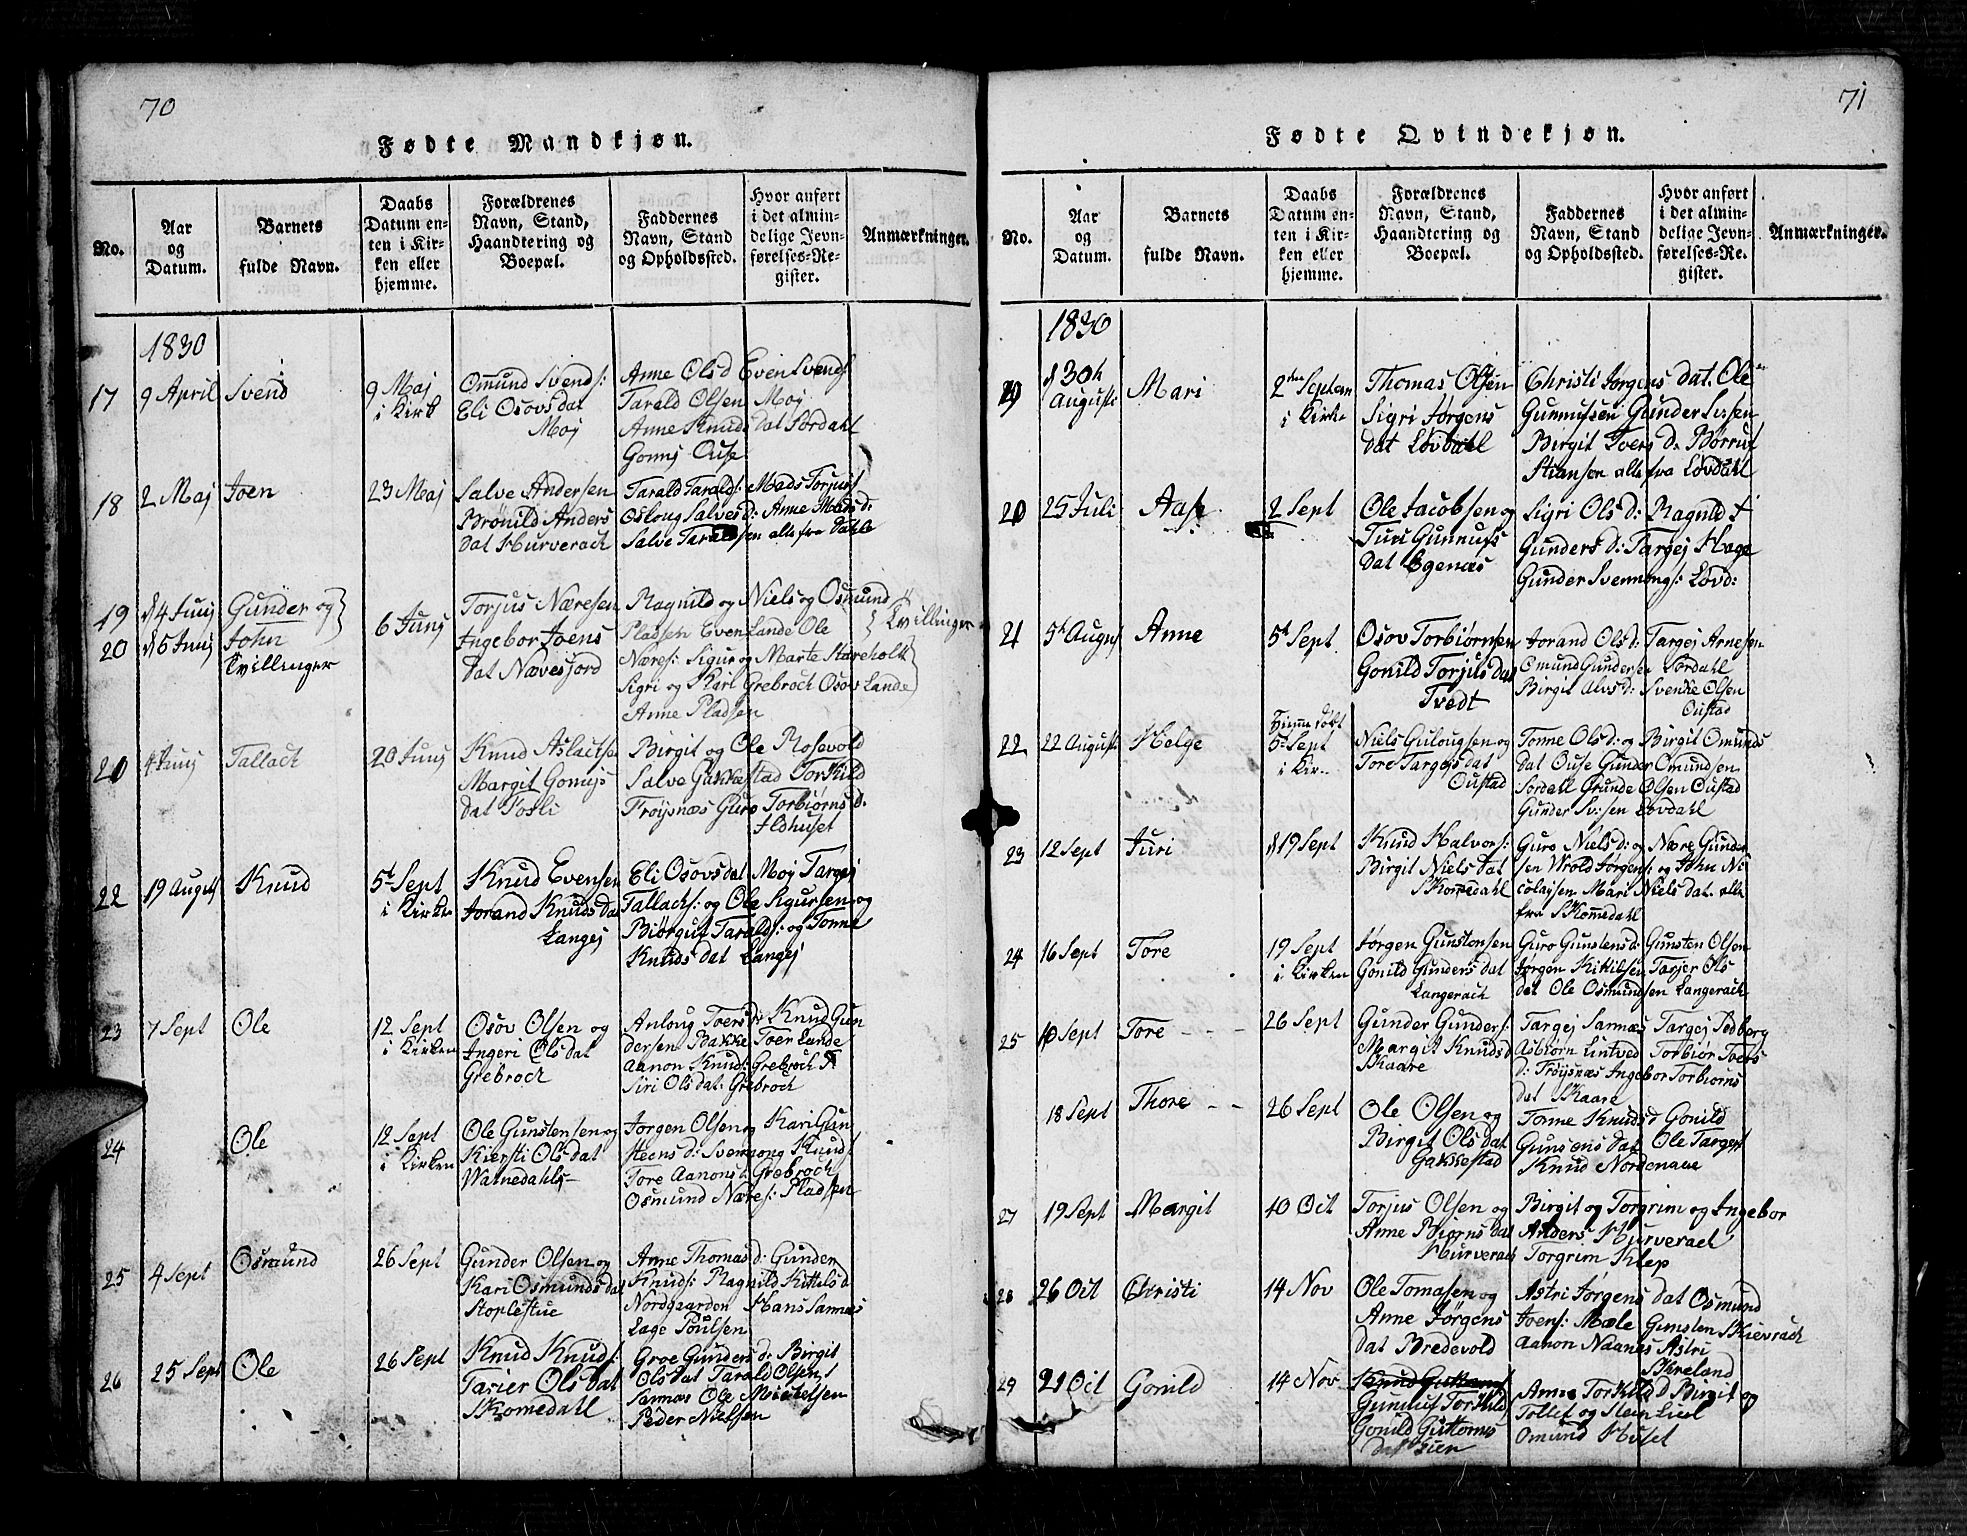 70
Fødte Mandkjøn.
No.
Aar og Datum.
Barnets fulde Navn.
Daabs Datum enten i Kirken eller hjemme.
Forældrenes Navn, Stand, Haandtering og Boepæl.
Faddernes Navn, Stand og Opholdssted.
Hvor anført i det almindelige Jevnførelses-Register.
Anmærkninger.
1830
17
9 April
Svend
9 Maj
i Kirk
Omund Svends:
Eli Osovsdat
Moj
Anne Olsd Even Svends
Tarald Olsen Moj
Anne Knudsdat Sordahl
Gonny Ouse
18
2 Maj
Joen
23 Maj
Salve Andersen
Brønild Anders
dat Hurverack
Tarald Taralds: Mads Torjus
Osloug Salves d: Anne Mads d:
Salve Taraldsen alle fra Dahle
19
20
4 Junj
5 Junj
Gunder og
John
Tvillinger
6 Junj
Torjus Næresen
Ingebor Joens
dat Nævesjord
Ragnild og Niels og Osmund
Pladsen Even Lande Ole
Næres: Sigur og Marte Stareholt
Sigri og Kari Grebrock Osov Lande
Anne Pladsen
Tvillinger
20
4 Junj
Tallack
20 Junj
Knud Aslacts
Margit Gonnys
dat Fosli
Birgit og Ole Rosevold
Salve Gakkestad Torkild
Frøysnæs Guro Torbiørns d.
Ildhuset
22
19 August
Knud
5t Sept
i Kirke
Knud Evensen
Jorand Knuds da
Langej
Eli Osovsdat Moj Targej
Tallacks: og Ole Sigursen og
Biørguf Taralds: og Tonne
Knuds dat Langej
23
7 Sept
Ole
12 Sept
i Kirken
Osov Olsen og
Ingeri Olsdat
Grebrock
Anloug Toersd: Knud Gun
dersen Bakke Toer Lande
Aanon Knuds: Grebrock
Siri Olsdat: Grebrock
24
Ole
12 Sept
i Kirken
Ole Gunstensen og
Kiersti Olsdat
Jorgen Olsen og Kari Gun
steens d: Svennong Knuds
Tore Aanons d: Grebrock
Osmund Næres: Pladsen
25
4 Sept
Osmund
26 Sept
Gunder Olsen og
Kari Osmundsdat
Stoplestue
Anne Thomas d: Gunder
Knuds: Ragnild Kittels d
Nordgaarden Hans Sannæs
Lage Poulsen
26
25 Sept
Ole
26 Sept
Knud Knuds:
Tarier Olsdat
Skomedahl
Groe Gunders d: Birgit
Olsdat Tarald Olsen
Sannæs Ole Mickelsen
Peder Nielsen
71
Fødte Qvindekjøn.
No.
Aar og Datum.
Barnets fulde Navn.
Daabs Datum enten i Kirken eller hjemme.
Forældrenes Navn, Stand, Haandtering og Boepæl.
Faddernes Navn, Stand og Opholdssted.
Hvor anført i det almindelige Jevnførelses-Register.
Anmærkninger.
1830
19
30
August
Mari
2den Septem
i Kirke
Thomas Olsen
Sigri Jørgens
dat Løvdahl
Christi Jørgens dat. Ole
Gunnufsen Gunder
Birgit Ivers d. Børruf
Stiansen alle fra Løvdahl
20
25 Juli
Aase
2 Sept
Ole Jacobsen og
Turi Gunnufs
dat Egenæs
Sigri Ols d: Ragnild
Gunders d: Targej Hage
Gunder Svennings: Løvd:
21
5t August
Anne
5t Sept
Osov Torbiørnsen
Gonild Torjus dat
Tvedt
Jorand Ols d: Targej Arnesen
Omund Gundersen Sordahl
Birgit Alvs d: Svenke Olsen
Oustad
22
22 August
Helge
Hjemmedøbt
5t Sept
i Kir
Niels Gulougsen og
Tore Targejs dat
Oustad
Tonne Ols d: og Birgit Omunds
dat Ouse Gunder Omundsen
Sordahl Grunde Olsen Oustad
Gunder Løvdahl
23
12 Sept
Turi
19 Sept
Knud Halvors:
Birgit Niels dat
Skomedahl
Guro Niels d: og Nære Gunder
sen Wrold Jørgens: og John Ni
colajsen Mari Niels dat. alle
fra Skomedahl
24
16 Sept
Tore
19 Sept
i Kirken
Jørgen Gunstensen
Gonild Gunders dat
Langerack
Guro Gunstensd: Gunsten Olsen
Jørgen Kittilsen Tarjer Ols
dat Ole Osmundsen Langerack
25
10 Sept
Tore
26 Sept
Gunder Gunders:
Margit Knuds d
Skaare
Targej Sannæs Targej Sedberg
Asbiørn Lintved Torbiør Ivers
d: Frøysnæs Ingebor Torbiørns
dat Skaare
18 Sept
Thore
26 Sept
Ole Olsen og
Birgit Olsdat
Gakkestad
Tonne Knuds d Gonild
dat Ole Targej
Knud Nordenaae
27
19 Sept
Margit
10 Oct
Torjus Olsen og
Anne Biørns dat
Hurverack
Birgit og Torgrim og Ingebor
Anders Hurverack
Torgrim Klep
28
26 Oct
Christi
14 Nov
Ole Tomasen og
Anne Jørgens
dat Bredevold
Astri Jørgens dat Osmund
Joens: Mæle Gunsten Skievrack
Aanon Naanes Astri
Skreland
29
21 Oct
Gonild
14 Nov
Gunuf Torkild
Gonild Guttorms
dat Lien
Anne Torkild d Birgit og
Tollef og Stein Lien
Omund Huset